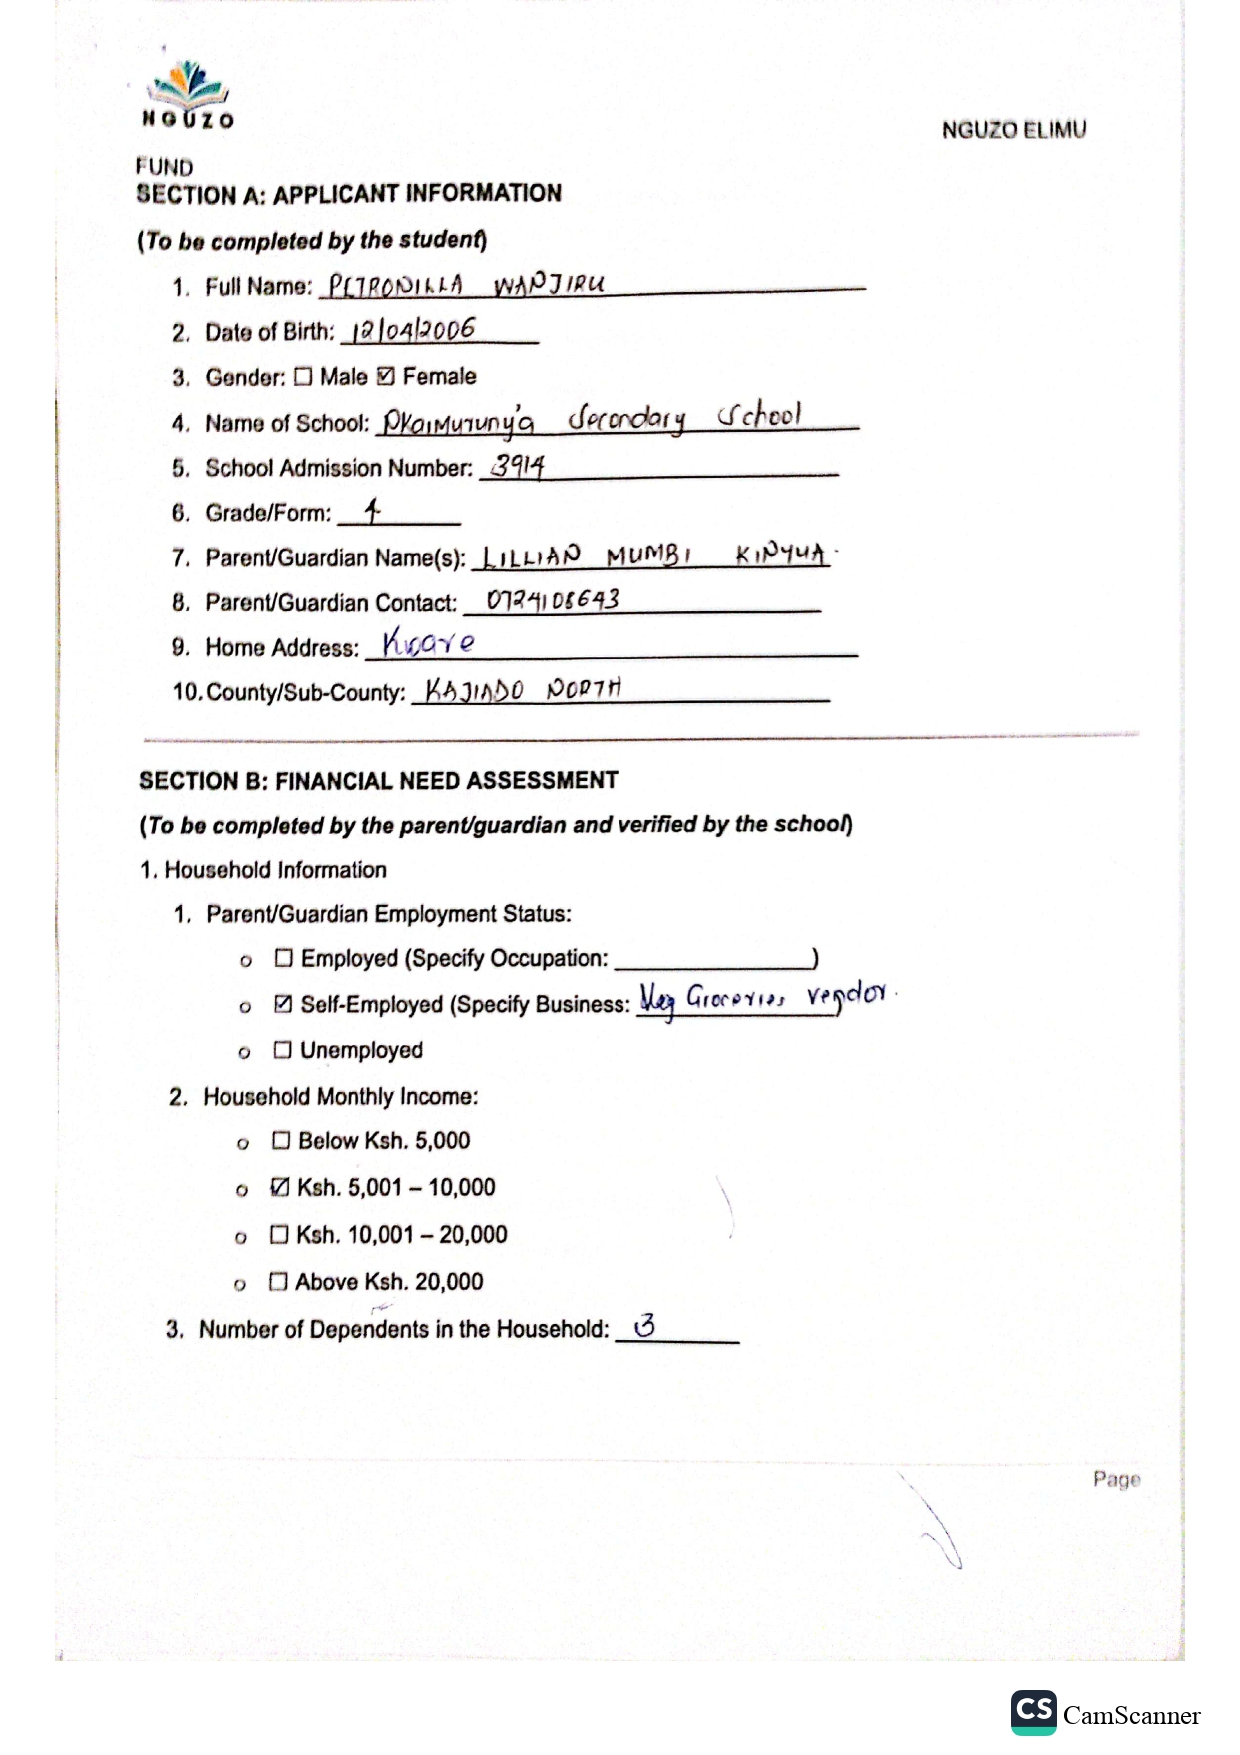 NGUZO
NGUZO ELIMU
FUND
SECTION A: APPLICANT INFORMATION
(To be completed by the student)
1. Full Name: PETRONILLA WANJIRU
2. Date of Birth: 12/04/2006
3. Gender: ☐ Male ☑ Female
4. Name of School: Nkaimurunya Secondary School
5. School Admission Number: 3914
6. Grade/Form: 4
7. Parent/Guardian Name(s): LILLIAN MUMBI KINYUA.
8. Parent/Guardian Contact: 0724108643
9. Home Address: Kware
10. County/Sub-County: KAJIADO NORTH
SECTION B: FINANCIAL NEED ASSESSMENT
(To be completed by the parent/guardian and verified by the school)
1. Household Information
1. Parent/Guardian Employment Status:
o ☐ Employed (Specify Occupation: ________)
o ☑ Self-Employed (Specify Business: Veg Groceries vendor.
o ☐ Unemployed
2. Household Monthly Income:
o ☐ Below Ksh. 5,000
o ☑ Ksh. 5,001 – 10,000
o ☐ Ksh. 10,001 – 20,000
o ☐ Above Ksh. 20,000
3. Number of Dependents in the Household: 3
Page
CS CamScanner